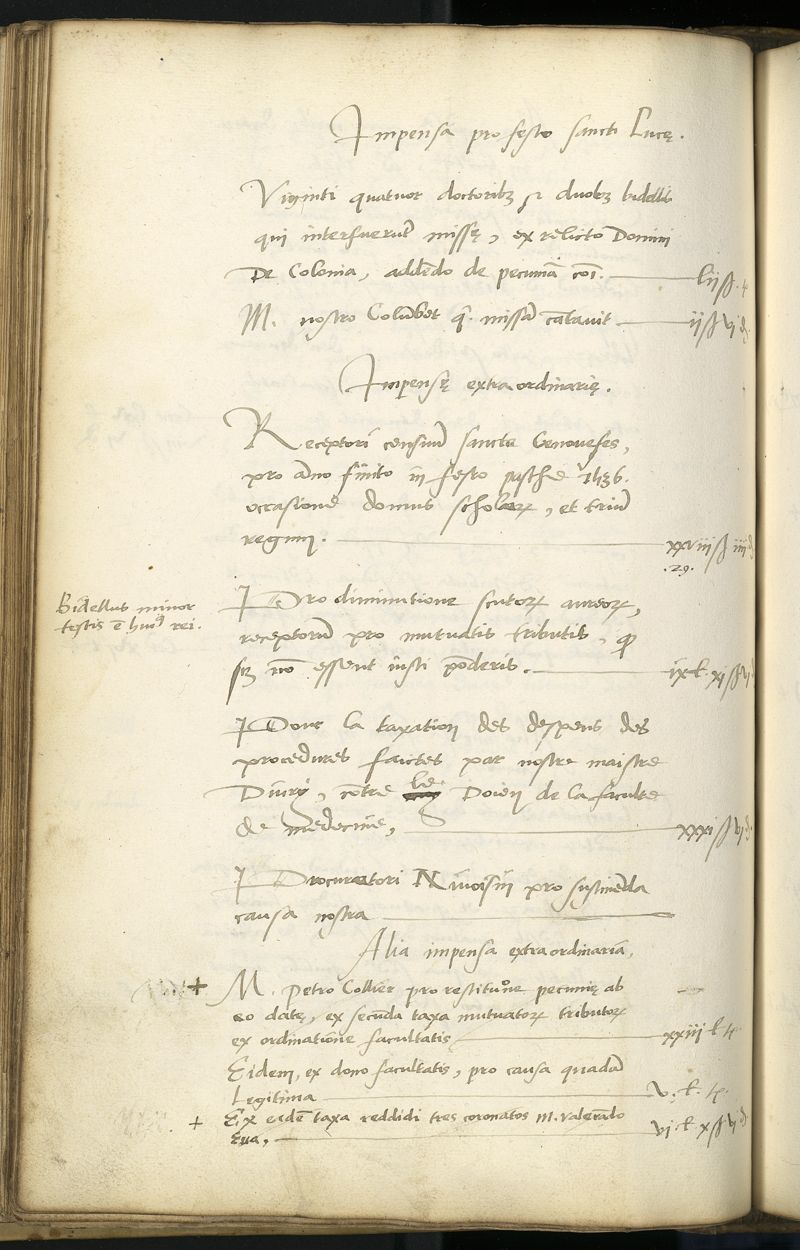 Impensa pro festo sancti Lucę.
Viginti quatuor doctoribꝫ et duobꝫ bidellis
qui interfuerūt missę, ex relicto Domini
De Colonia, addēdo de pecunia cōi. lii ß. t
M. nostro Colūbet q̇ missā cātavit. ii ß vi d
Impensę extraordinarię.
Receptori censuū sancta Genovefes,
pro āno finito in festo pasche 1536.
occasione domus scholaꝝ, et triū
regum. xxviii ß iiii d
.29.
Bidellus minor
testis ē huiꝰ rei.
Pro diminutione scutoꝝ aureoꝝ,
receptorū pro mutuatis tributis, qꝫ
nō essent iusti pōderis. ix l. xi ß vi d
Pour la taxation des despens des
procedures faictes par nostre maistre
Divry, cōtre le Doien de la faculte
de medecine, xxxi ß vi d.
Procuratori Nivoisin pro sustinēda
causa nostra
Alia impensa extraordinaria,
+ M. Petro Collier pro restitutiōne pecunię ab
eo datę, ex secūda taxa mutuatoꝝ tributoꝝ
ex ordinatione facultatis xxiii l t
Eidem, ex dono facultatis, pro causa quadā
Legitima v. l. t.
+ Ex eadē taxa reddidi tres coronatos M. Valerādo
Eua, vi l. x ß vi d